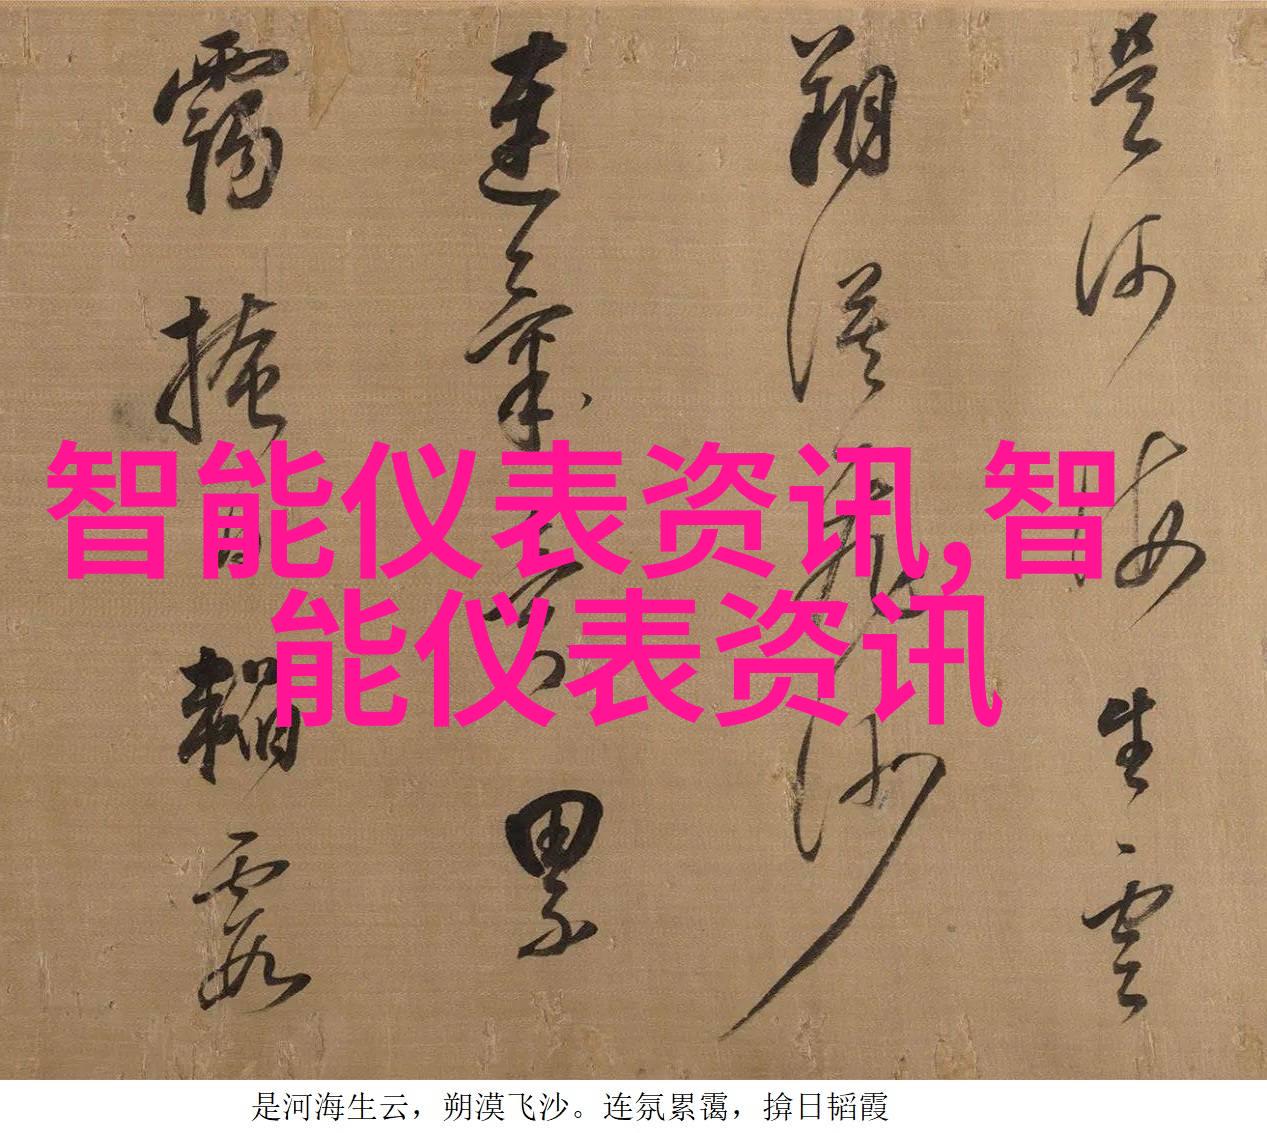 是河海生雲
朔漠飛沙
連氛累
靄掩日韜霞
智能仪表资讯,智
能仪表资讯
是河海生云，朔漠飞沙。连氛累霭，揜日韬霞